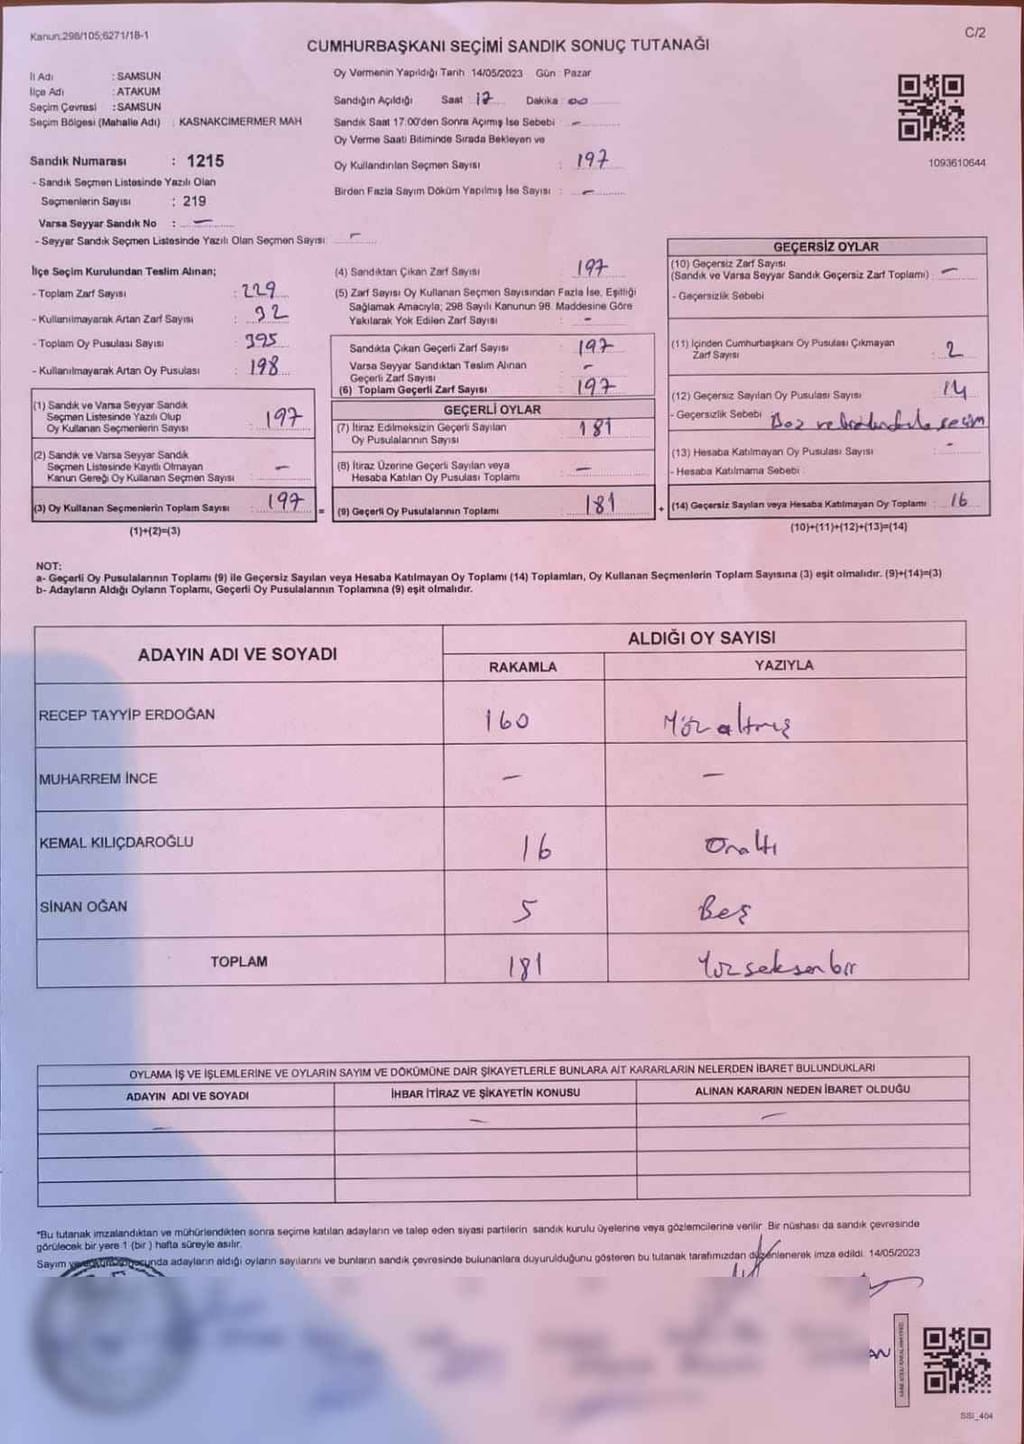 Kanun:298/105;6271/18-1
C/2
CUMHURBAŞKANI SEÇİMİ SANDIK SONUÇ TUTANAĞI
İl Adı : SAMSUN
İlçe Adı : ATAKUM
Seçim Çevresi : SAMSUN
Seçim Bölgesi (Mahalle Adı) : KASNAKCIMERMER MAH
Sandık Numarası : 1215
- Sandık Seçmen Listesinde Yazılı Olan
Seçmenlerin Sayısı : 219
Varsa Seyyar Sandık No : —
- Seyyar Sandık Seçmen Listesinde Yazılı Olan Seçmen Sayısı —
Oy Vermenin Yapıldığı Tarih 14/05/2023 Gün Pazar
Sandığın Açıldığı Saat : 17 Dakika : 00
Sandık Saat 17.00'den Sonra Açımış İse Sebebi : —
Oy Verme Saati Bitiminde Sırada Bekleyen ve
Oy Kullandırılan Seçmen Sayısı : 197
Birden Fazla Sayım Döküm Yapılmış İse Sayısı : —
1093610644
İlçe Seçim Kurulundan Teslim Alınan;
- Toplam Zarf Sayısı : 229
- Kullanılmayarak Artan Zarf Sayısı : 32
- Toplam Oy Pusulası Sayısı : 395
- Kullanılmayarak Artan Oy Pusulası : 198
(1) Sandık ve Varsa Seyyar Sandık
Seçmen Listesinde Yazılı Olup
Oy Kullanan Seçmenlerin Sayısı : 197
(2) Sandık ve Varsa Seyyar Sandık
Seçmen Listesinde Kayıtlı Olmayan
Kanun Gereği Oy Kullanan Seçmen Sayısı : —
(3) Oy Kullanan Seçmenlerin Toplam Sayısı : 197
(1)+(2)=(3)
(4) Sandıktan Çıkan Zarf Sayısı : 197
(5) Zarf Sayısı Oy Kullanan Seçmen Sayısından Fazla İse, Eşitliği
Sağlamak Amacıyla; 298 Sayılı Kanunun 98. Maddesine Göre
Yakılarak Yok Edilen Zarf Sayısı : —
Sandıkta Çıkan Geçerli Zarf Sayısı : 197
Varsa Seyyar Sandıktan Teslim Alınan
Geçerli Zarf Sayısı : —
(6) Toplam Geçerli Zarf Sayısı : 197
GEÇERLİ OYLAR
(7) İtiraz Edilmeksizin Geçerli Sayılan
Oy Pusulalarının Sayısı : 181
(8) İtiraz Üzerine Geçerli Sayılan veya
Hesaba Katılan Oy Pusulası Toplamı : —
= (9) Geçerli Oy Pusulalarının Toplamı : 181 +
GEÇERSİZ OYLAR
(10) Geçersiz Zarf Sayısı
(Sandık ve Varsa Seyyar Sandık Geçersiz Zarf Toplamı) : —
- Geçersizlik Sebebi
(11) İçinden Cumhurbaşkanı Oy Pusulası Çıkmayan
Zarf Sayısı : 2
(12) Geçersiz Sayılan Oy Pusulası Sayısı 14
- Geçersizlik Sebebi : Boz
(13) Hesaba Katılmayan Oy Pusulası Sayısı : -
- Hesaba Katılmama Sebebi
(14) Geçersiz Sayılan veya Hesaba Katılmayan Oy Toplamı : 16
(10)+(11)+(12)+(13)=(14)
NOT:
a- Geçerli Oy Pusulalarının Toplamı (9) ile Geçersiz Sayılan veya Hesaba Katılmayan Oy Toplamı (14) Toplamları, Oy Kullanan Seçmenlerin Toplam Sayısına (3) eşit olmalıdır. (9)+(14)=(3)
b- Adayların Aldığı Oyların Toplamı, Geçerli Oy Pusulalarının Toplamına (9) eşit olmalıdır.
ADAYIN ADI VE SOYADI
ALDIĞI OY SAYISI
RAKAMLA YAZIYLA
RECEP TAYYİP ERDOĞAN 160 Yüz altmış
MUHARREM İNCE — —
KEMAL KILIÇDAROĞLU 16 Onaltı
SİNAN OĞAN 5 Beş
TOPLAM 181 Yüzseksenbir
OYLAMA İŞ VE İŞLEMLERİNE VE OYLARIN SAYIM VE DÖKÜMÜNE DAİR ŞİKAYETLERLE BUNLARA AİT KARARLARIN NELERDEN İBARET BULUNDUKLARI
ADAYIN ADI VE SOYADI İHBAR İTİRAZ VE ŞİKAYETİN KONUSU ALINAN KARARIN NEDEN İBARET OLDUĞU
— — —
*Bu tutanak imzalandıktan ve mühürlendikten sonra seçime katılan adayların ve talep eden siyasi partilerin sandık kurulu üyelerine veya gözlemcilerine verilir. Bir nüshası da sandık çevresinde
görülecek bir yere 1 (bir) hafta süreyle asılır.
Sayım adayların aldığı oyların sayılarını ve bunların sandık çevresinde bulunanlara duyurulduğunu gösteren bu tutanak tarafımızdan düzenlenerek imza edildi. 14/05/2023
SSI_404